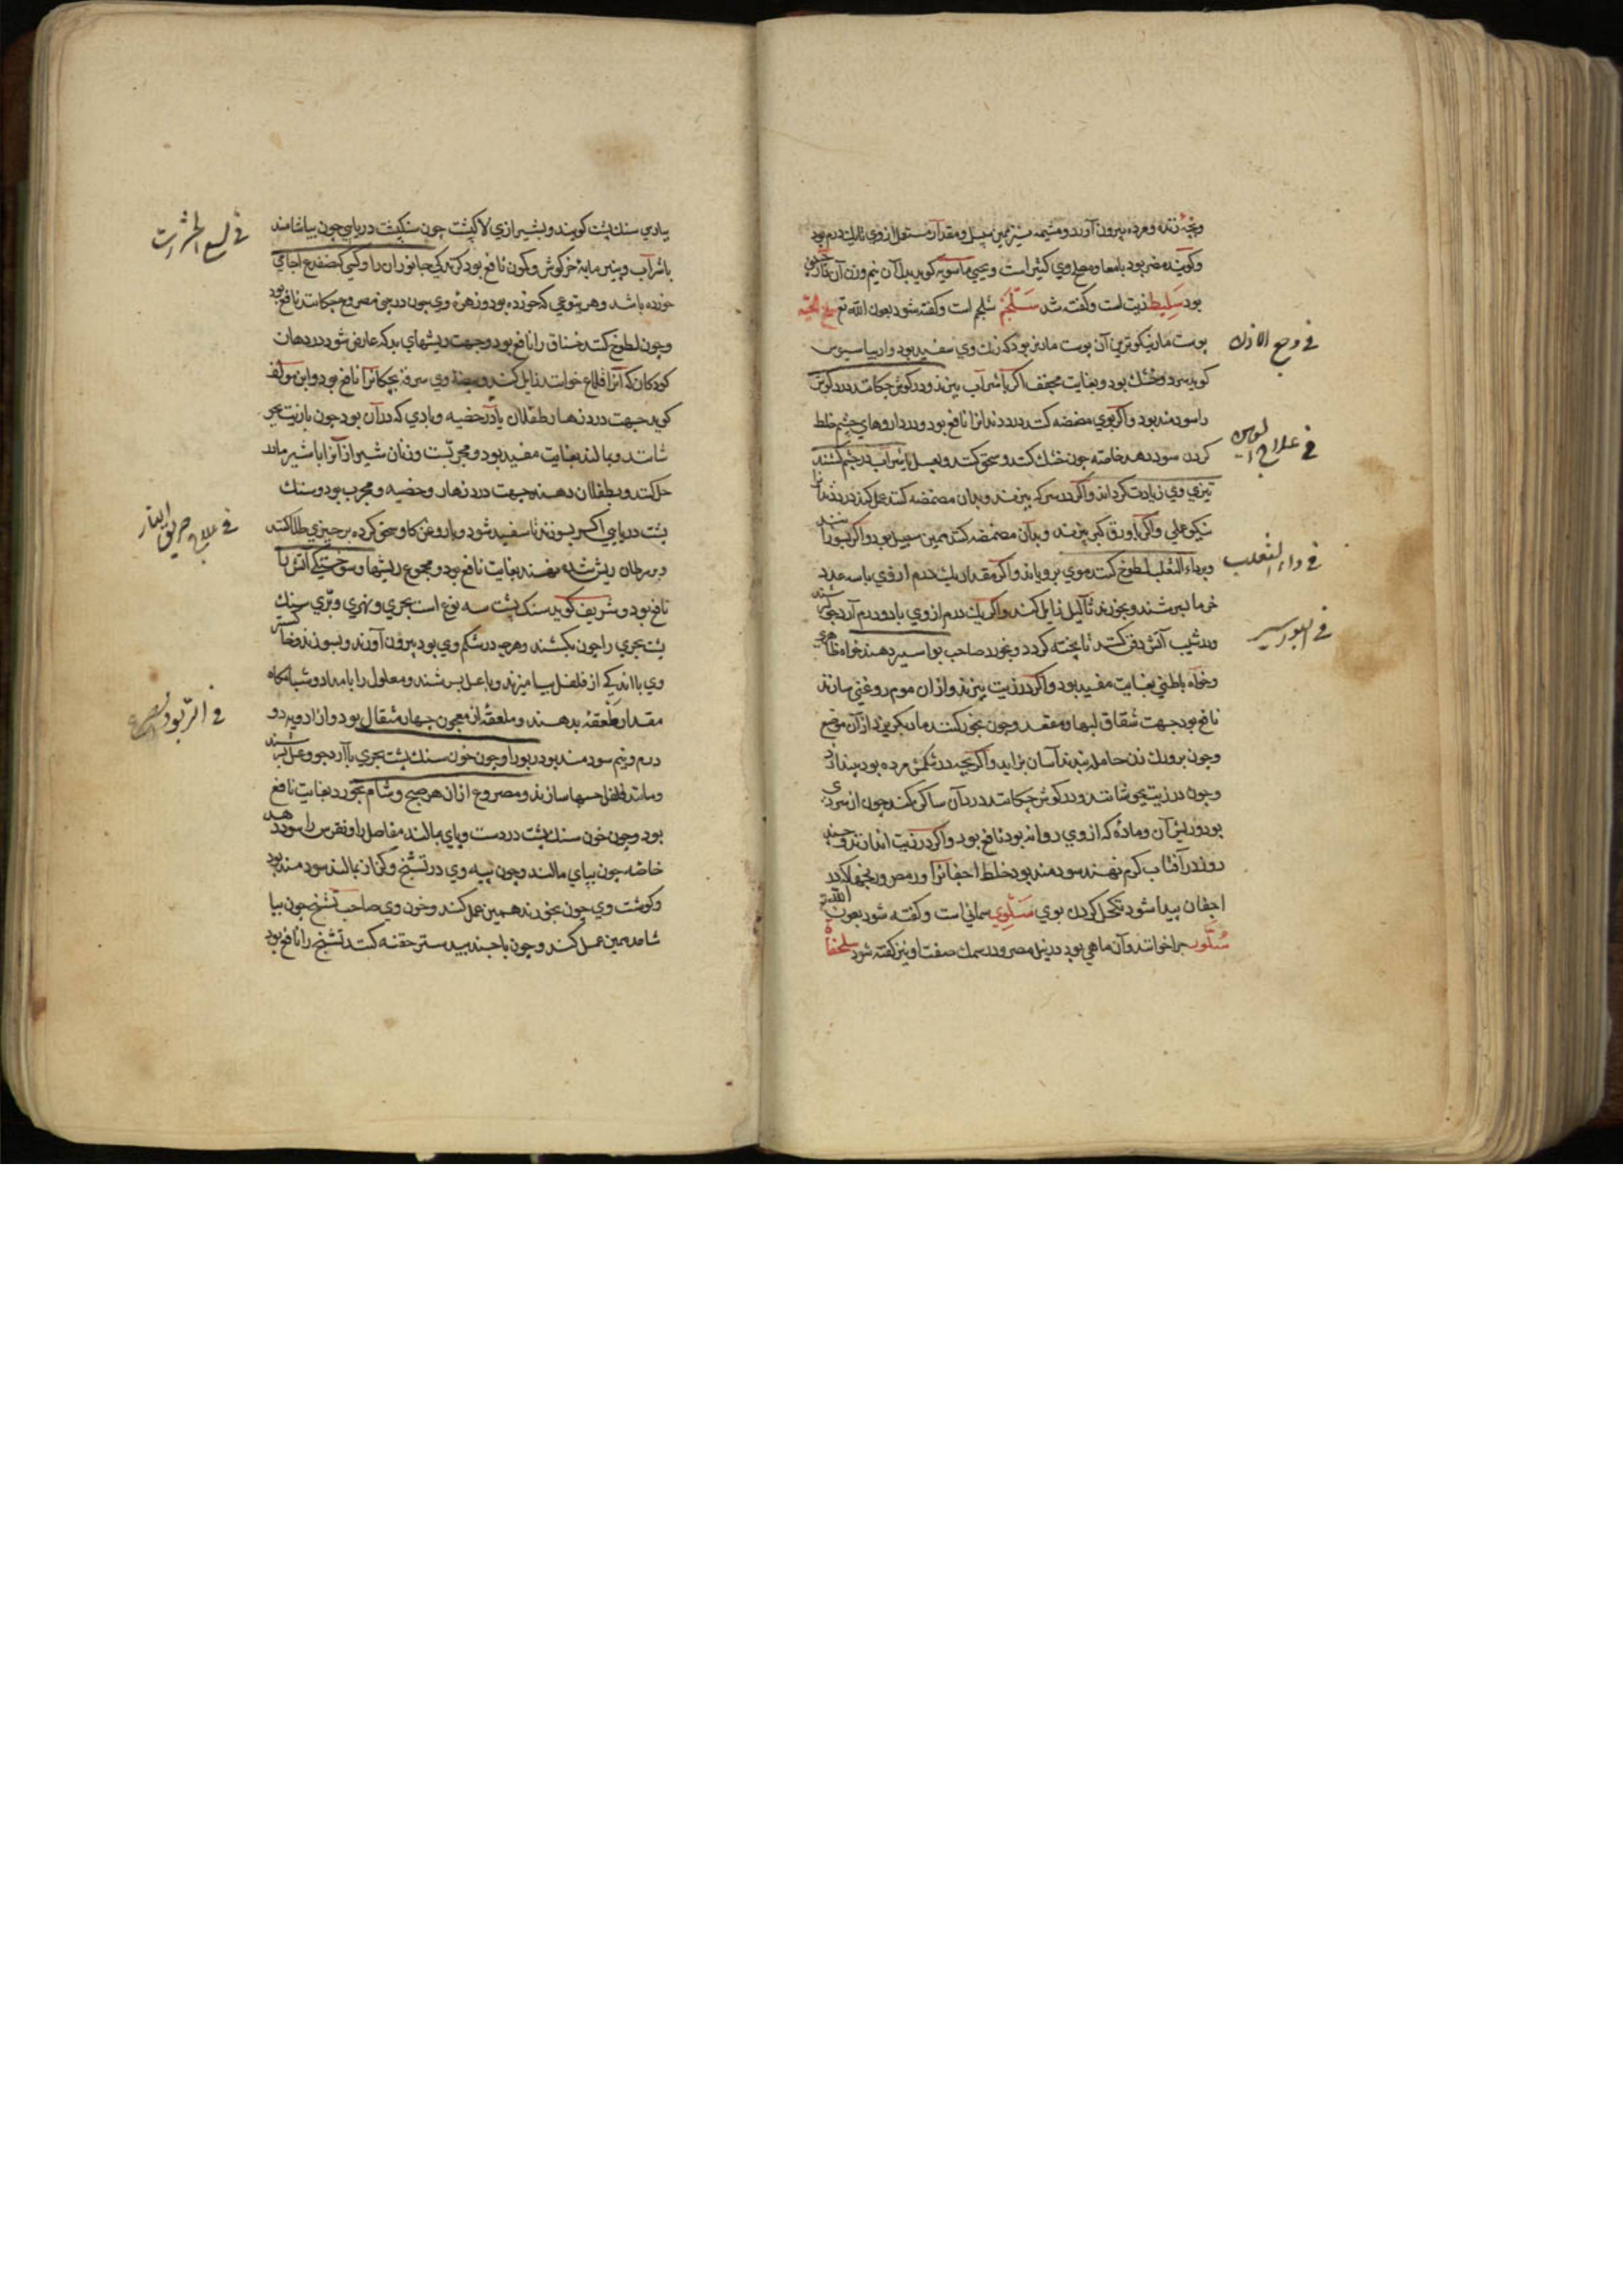 وبچه زنده ومرده بیرون آورد ومشیمه نیز همین سبیل ومقدار مستعمل از وی تا یك درم بود
وگویند مضر بود بامعا ومصلح وی کثیرا است ویحیی ماسویه گوید بدل آن نیم وزن آن
بود سَلِیط زیت است وگفته شد سَلْجَمْ شلجم است وگفته شود بعون الله تع سلخ الحیّه
پوست مار نیکوترین آن پوست مار نر بود که رنك وی سفید بود واریباسیوس
گوید سرد وخشك بود وبغایت مجفف اگر با شراب بپزند ودر گوش چکانند درد گوش
را سودمند بود واگر بوی مضمضه کنند درد دندانرا نافع بود ودر داروهای چشم خلط
کردن سود دهد خاصه چون خشك کنند وسحق کنند وبعسل یا شراب در چشم کشند
تیزی وی زیادت گرداند واگر در سرکه بپزند وبدان مضمضه کنند عمل کند در درد دندان
نیکو عملی واگر با ورق کبر بپزند وبدان مضمضه کنند همین سبیل بود واگر بسوزانند
وبرداء الثعلب لطوخ کنند موی برویاند واگر مقدار یك درم از وی با سه عدد
خرما بسرشند وبخورند ثآلیل زایل کند واگر یك درم از وی با دو درم آرد جو بسرشند
ودر شیب آتش دفن کنند تا پخته گردد وبخورد صاحب بواسیر دهند خواه ظاهری
وخواه باطنی بغایت مفید بود واگر در زیت بپزند واز آن موم روغنی سازند
نافع بود جهت شقاق لبها ومقعد وچون بخور کنند مار بگریزد از آن موضع
وچون بر ورك زن حامله بندند آسان بزاید واگر بچه در شکمش مرده بود بیندازد
وچون در زیت بجوشانند ودر گوش چکانند درد آن ساکن کند چون از سردی
بود وریش آن وماده که از وی روانه بود نافع بود واگر در زیت اندازند وچند
روز در آفتاب گرم نهند سودمند بود خلط اجفانرا
اجفان پیدا شود تکحل کردن بوی سَلْوِی سمانی است وگفته شود بعون الله تع
سُلَّور جرا خوانند وآن ماهی بود در نیل مصر ودر سمك صفت او نیز گفته شود سلحفاة
فی وجع الاذن
فی علاج
فی داء الثعلب
فی البواسیر
بپارسی سنك پشت گویند وبشیرازی لاك پشت چون سنك پشت دریایی چون بیاشامند
با شراب وپنیر مایهٔ خرگوش وکمون نافع بود گزندگی جانوران را وکسی که ضفدع اجامی
خورده باشد وهر یتوعی که خورده بود وزهرهٔ وی چون در بینی مصروع چکانند نافع بود
وچون لطوخ کنند خناق را نافع بود وجهت ریشهای بد که عارض شود در دهان
کودکان که آنرا قلاع خوانند زایل کند وبیضهٔ وی سرفهٔ بچکانرا نافع بود وابن مولف
گوید جهت درد زهار طفلان یا در خصیه وبادی که در آن بود چون با زیت بجو
شانند وبمالند بغایت مفید بود ومجربست وزنان شیراز آنرا با شیر مادر
حل کنند وبطفلان دهند جهت درد زهار وخصیه ومجرب بود وسنك
پشت دریایی اگر بسوزند تا سفید شود وبا روغن گاو سحق کرده بر چیزی طلا کنند
وبر سرطان ریش شده نهند بغایت نافع بود ومجموع ریشها وسوختگی آتش را
نافع بود وشریف گوید سنك پشت سه نوع است بحری ونهری وبرّی سنك
پشت بحری را چون بکشند وهرچه در شکم وی بود بیرون آورند وبسوزند وخاکستر
وی با اندکی از فلفل بیامیزند وبا عسل بسرشند ومعلول را بامداد وشبانگاه
مقدار ملعقهٔ بدهند وملعقهٔ از معجون چهار مثقال بود واز ادویه دو
درم ونیم سودمند بود ربو را وچون خون سنك پشت بحری با آرد جو وعسل بسرشند
ومانند فلفل حبها سازند ومصروع از آن هر صبح وشام بخورد بغایت نافع
بود وچون خون سنك پشت در دست وپای بمالند مفاصل را ونقرس را سود دهد
خاصه چون بپای مالند وچون پیه وی در تشنج وکزاز بمالند سودمند بود
وگوشت وی چون بخورند همین عمل کند وخون وی صاحب تشنج چون بیا
شامد همین عمل کند وچون با جند بیدستر حقنه کنند تشنج را نافع بود
فی لسع الحشرات
فی علاج حریق النار
فی الربو